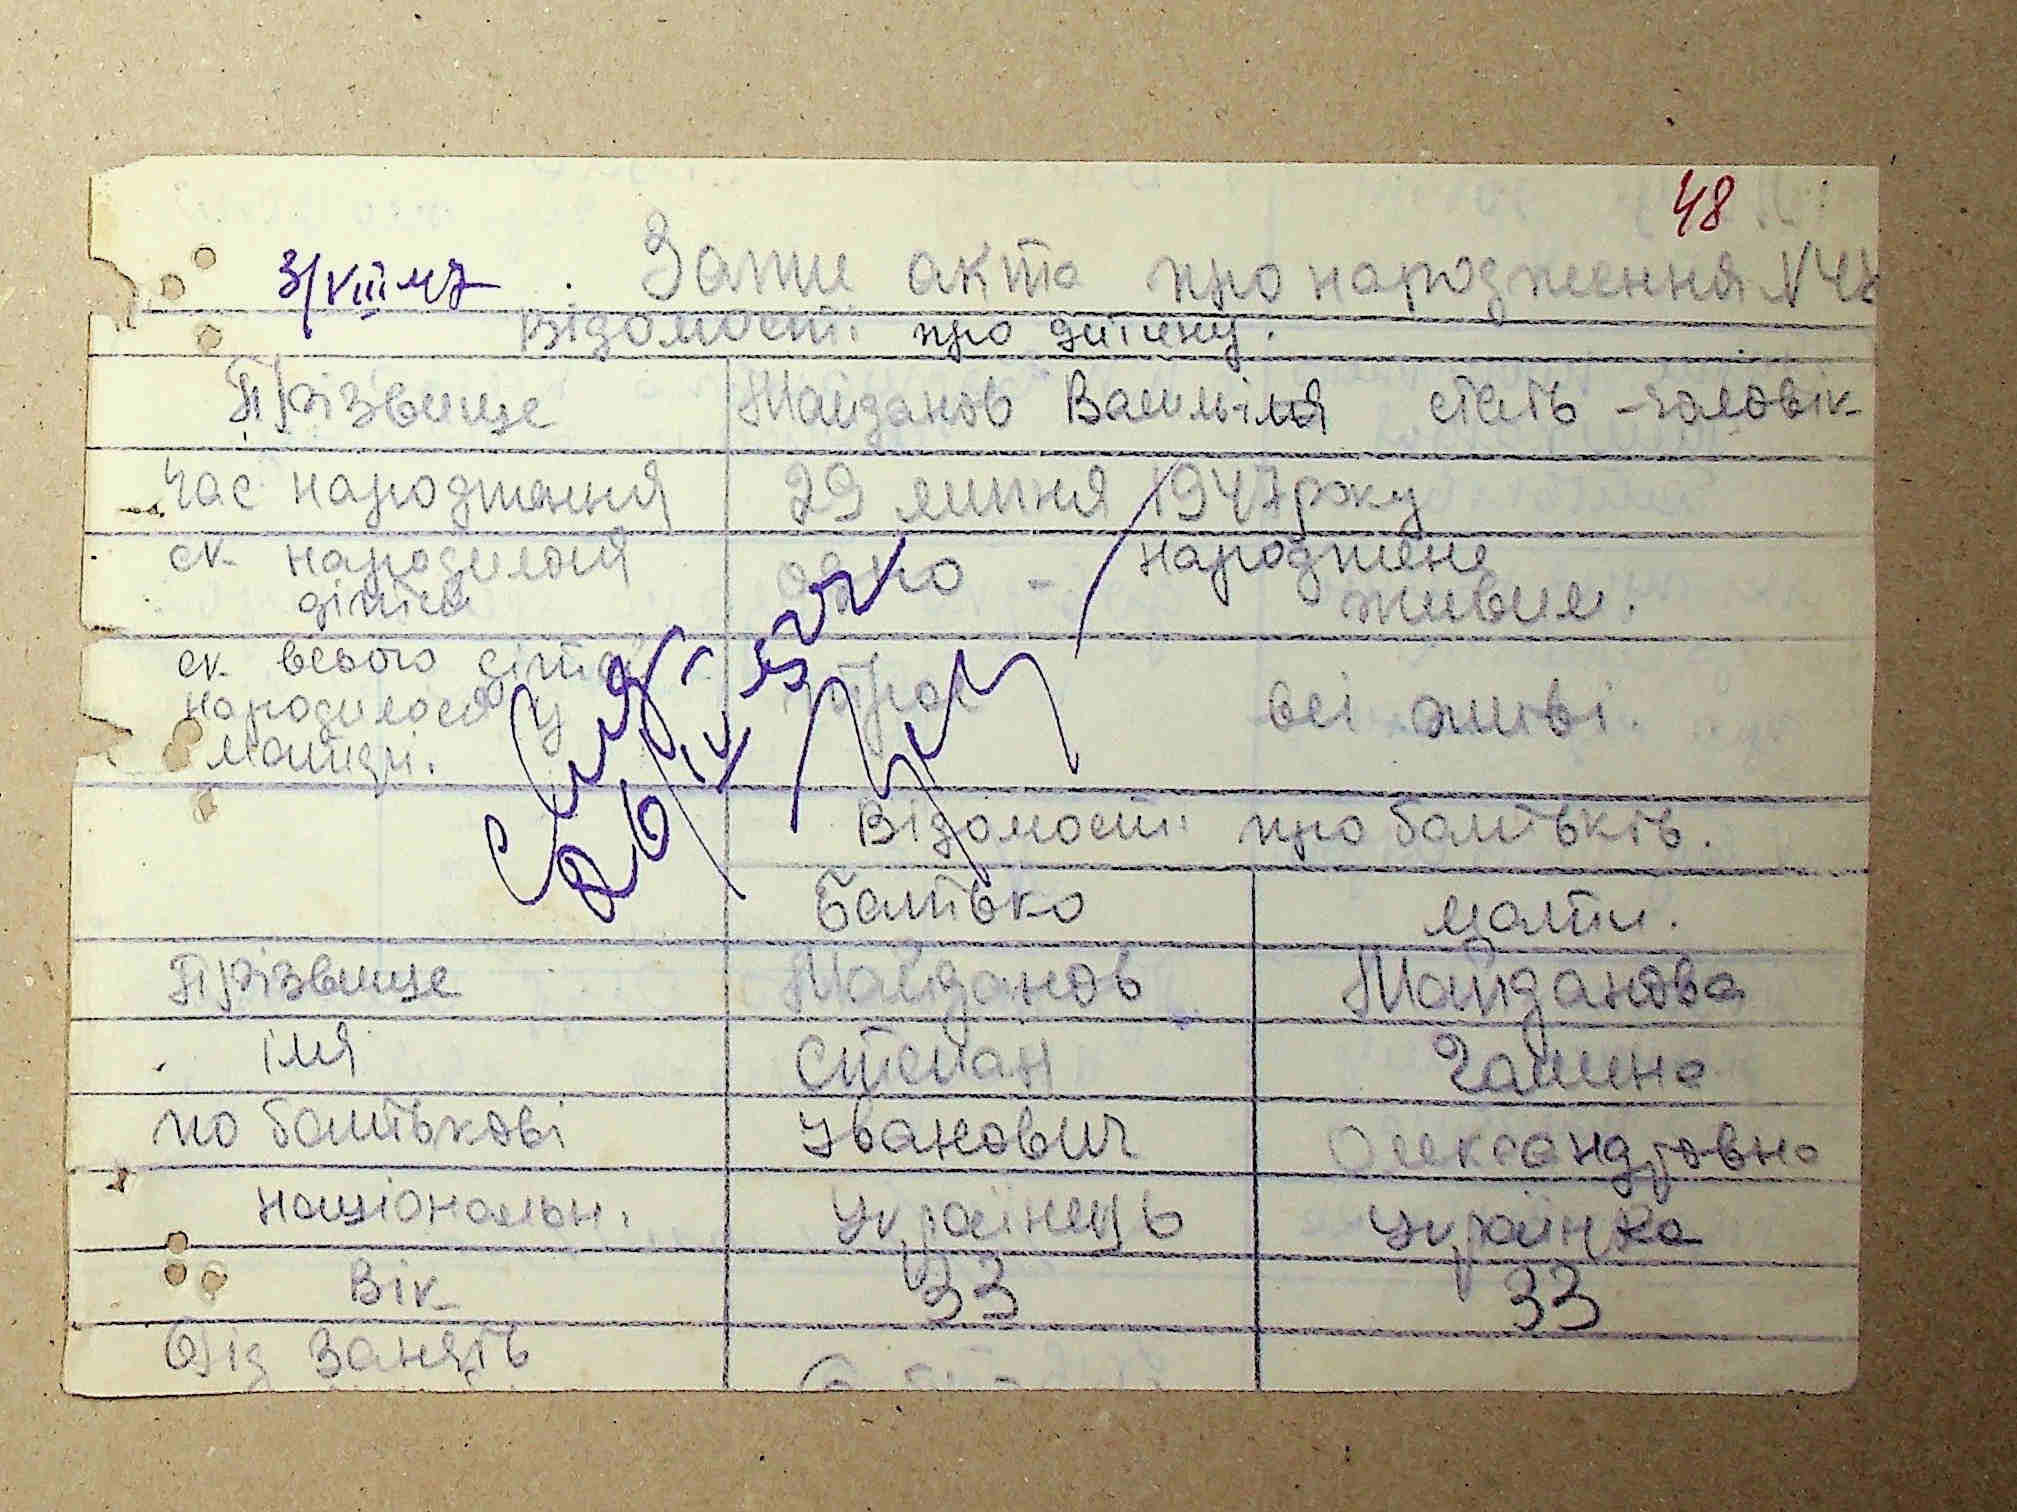 48
3/VIII 47 Запис акта про народження N 48
Відомості про дитину.
Прізвище Майданов Василь імя стать - чоловік
Час народження 29 липня 1947 року
ск. народилося одно - народжене
дітей живим.
ск. всього дітей троє всі живі.
народилося у
матері.
Відомості про батьків.
Батько мати.
Прізвище Майданов Майданова
імя Степан Галина
по батькові Іванович Олександровна
національн. Українець Українка
Вік 33 33
Від занять